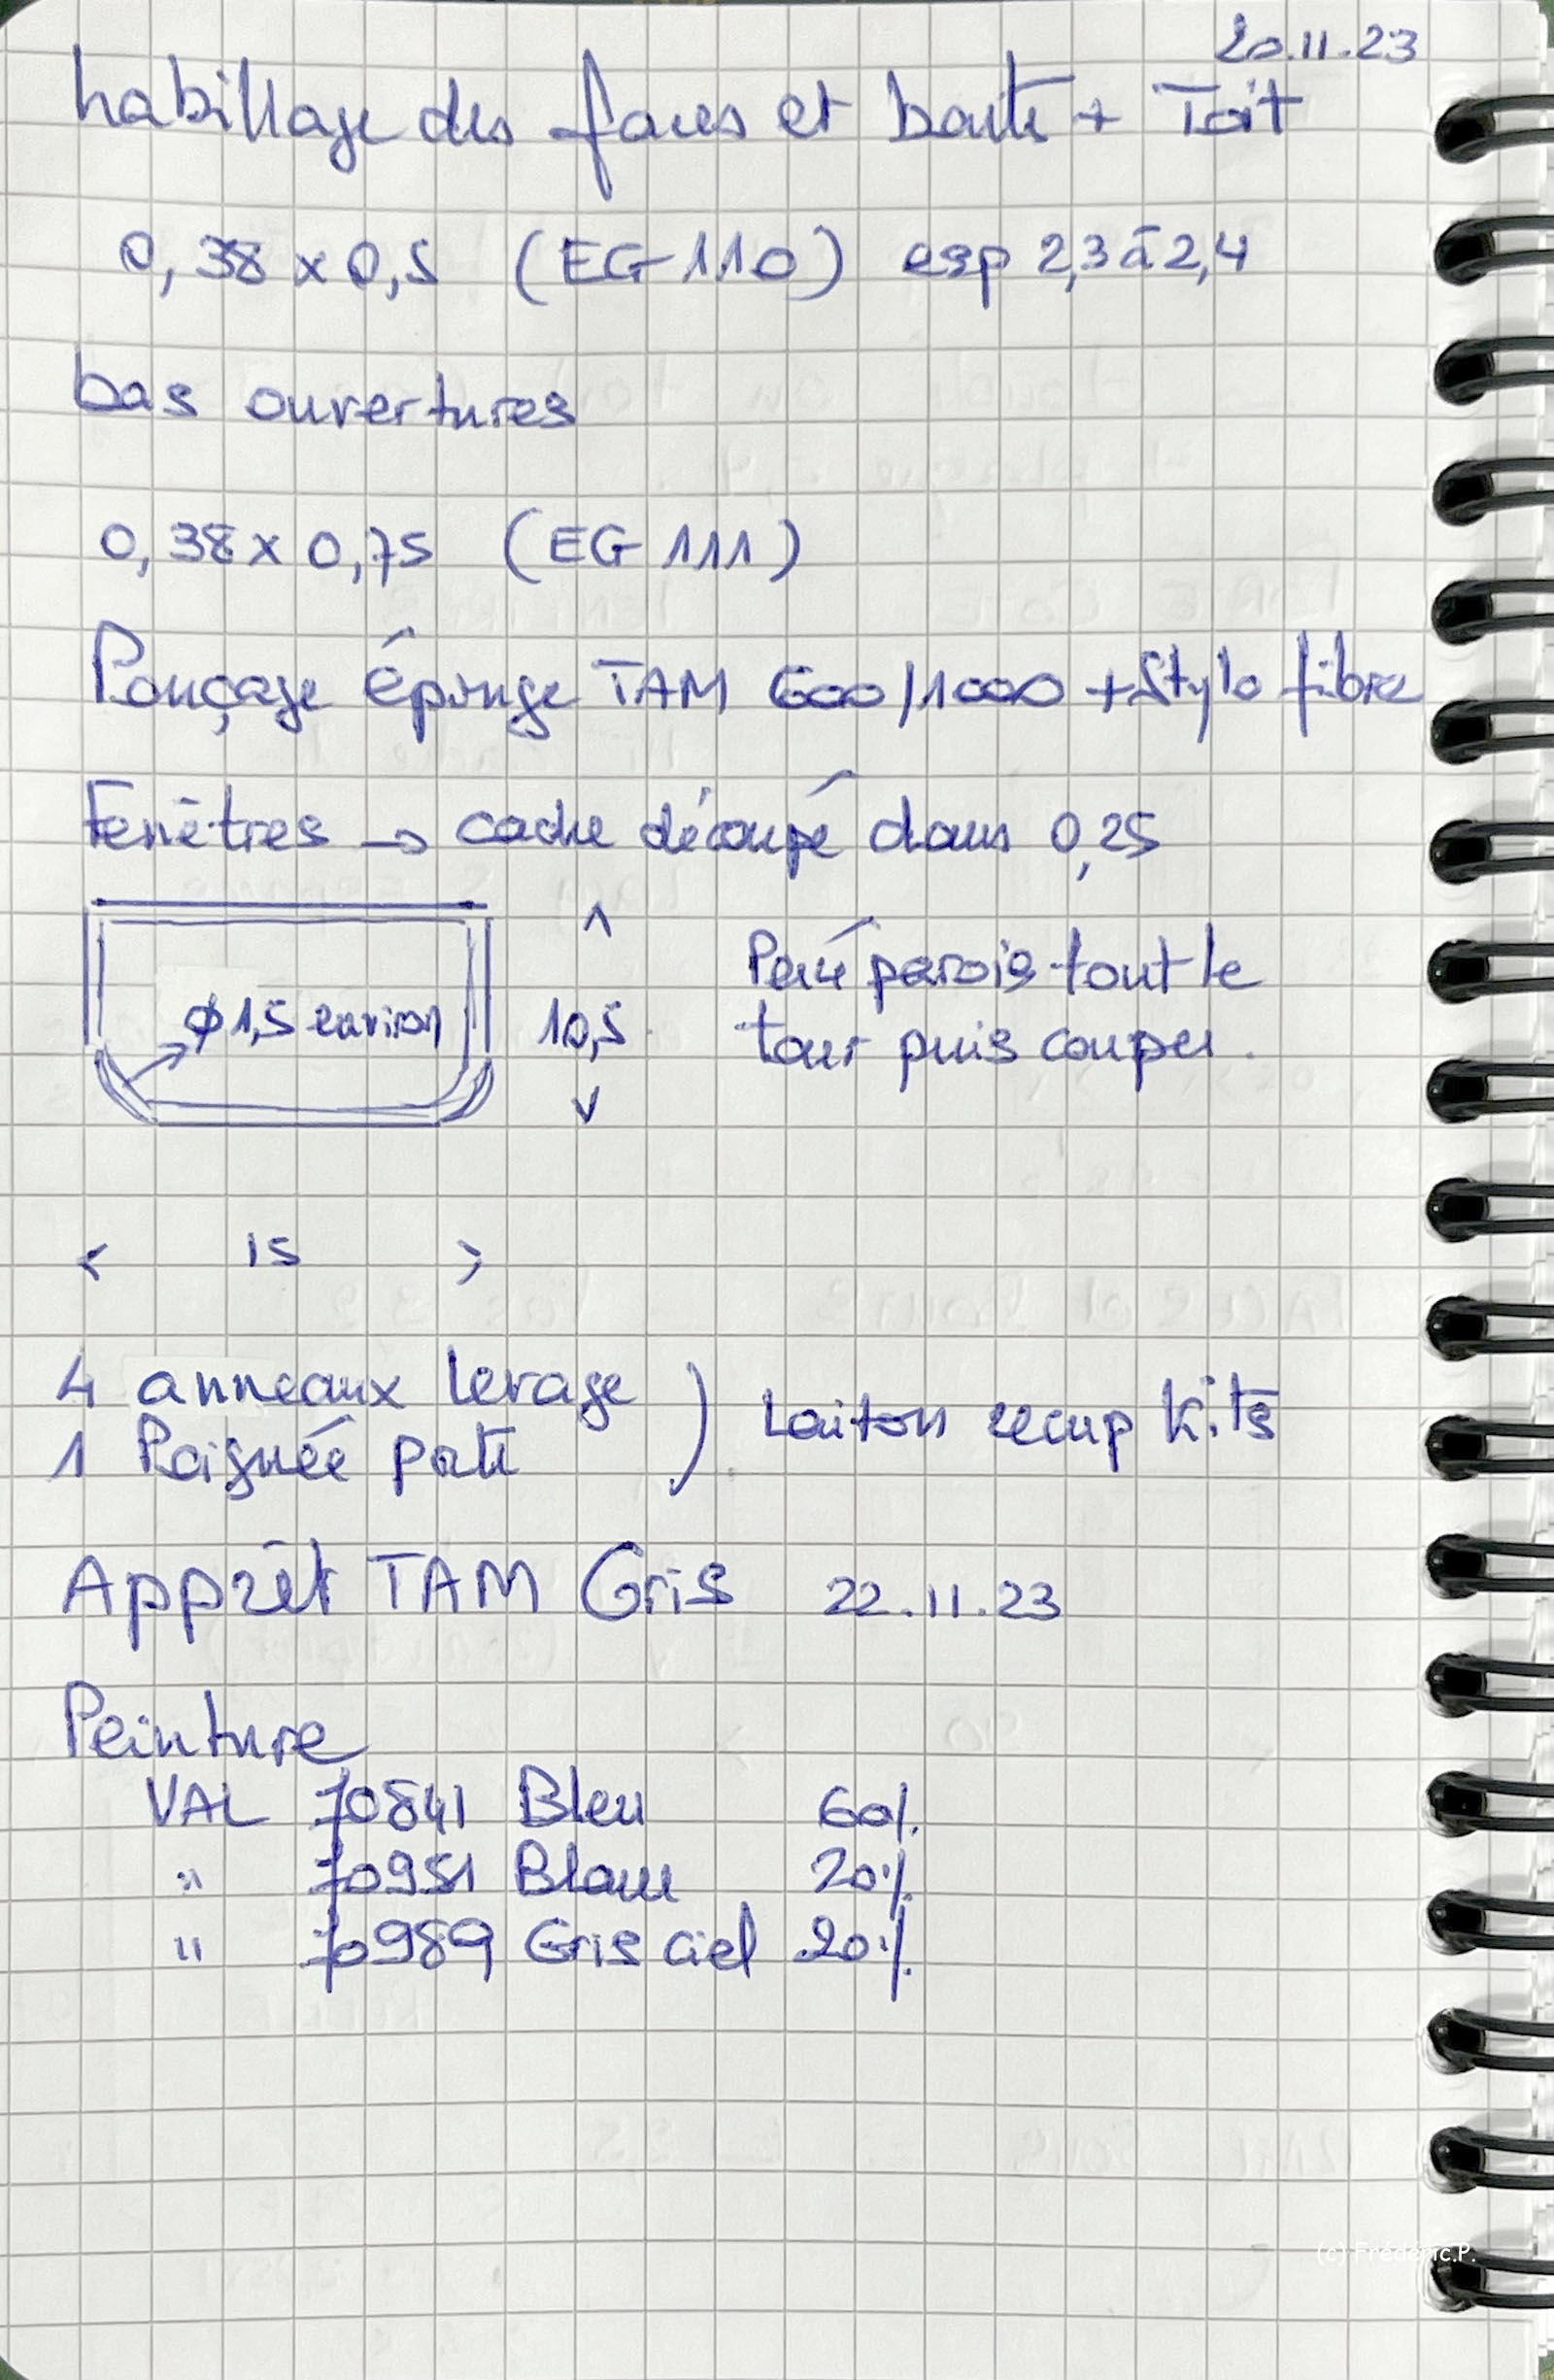 20.11.23
habillage des faces et boute + Toit
0,38 x 0,5 (EG 110) esp 2,3 à 2,4
bas ouvertures
0,38 x 0,75 (EG 111)
Ponçage éponge TAM 600/1000 + Stylo fibre
Fenêtres → cadre découpé dans 0,25
^
φ1,5 environ
10,5
v
parois tout le
tour puis couper.
< 15 >
4 anneaux levage )
1 Poignée porte ) Laiton recup Kits
Apprêt TAM Gris 22.11.23
Peinture
VAL 70841 Bleu 60%
" 70951 Blanc 20%
" 70989 Gris ciel 20%
(c) Frédéric.P.